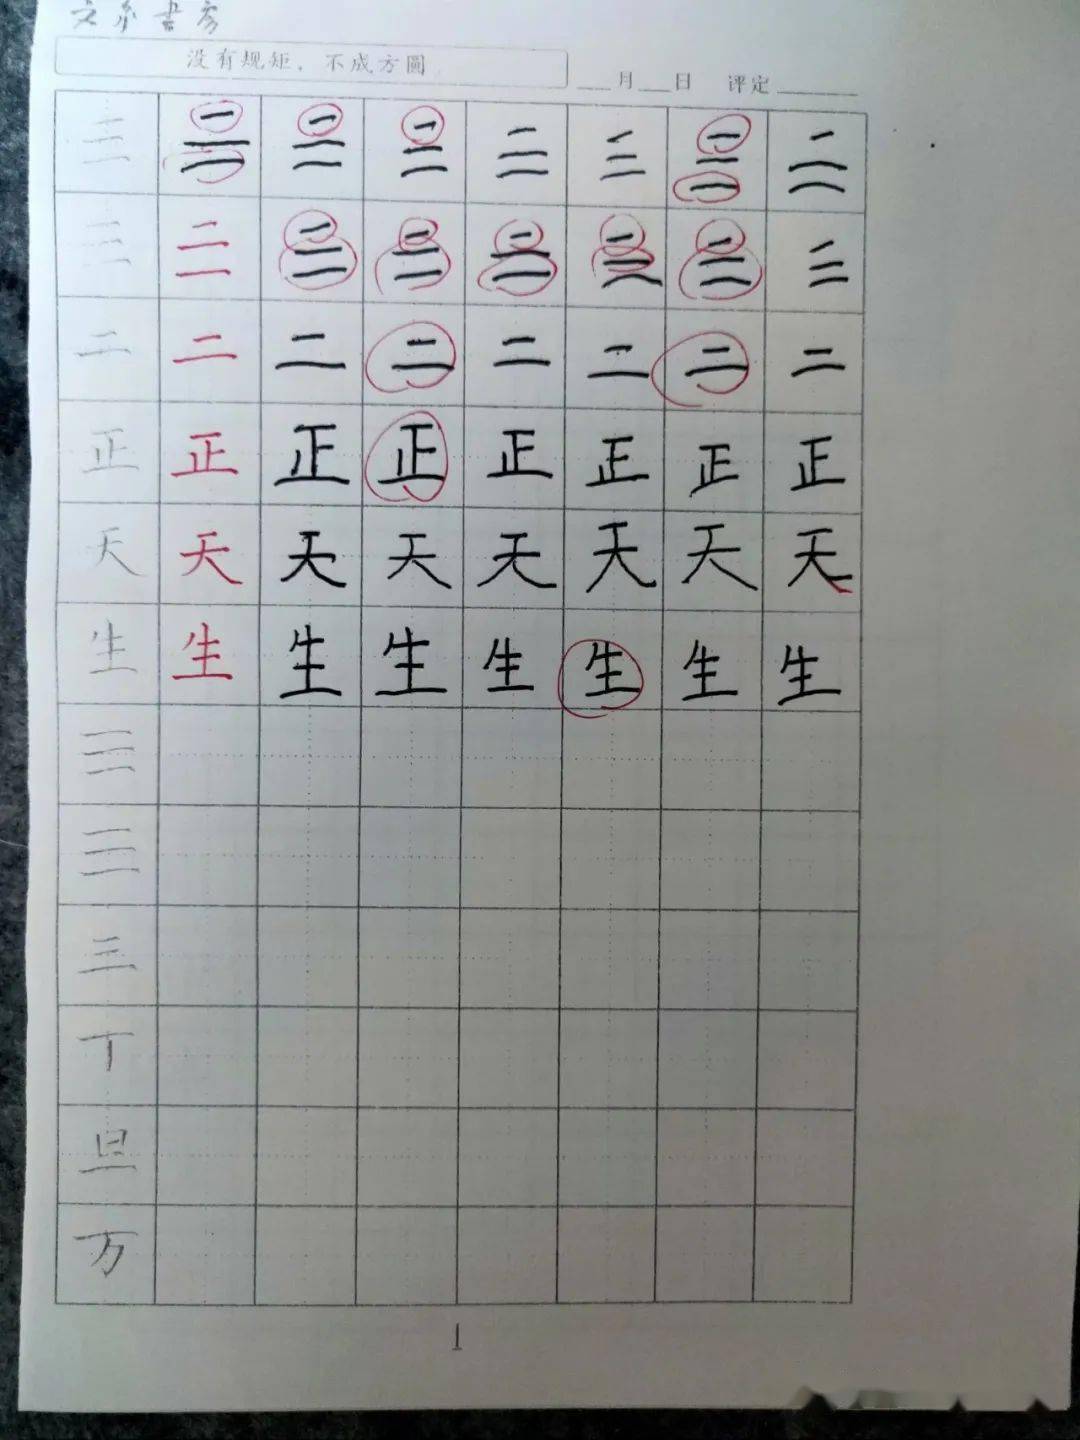 文亦書房
没有规矩，不成方圓
___月___日 评定______
三 三 三 三 三 三 三 三
三 三 三 三 三 三 三 三
二 二 二 二 二 二 二 二
正 正 正 正 正 正 正 正
天 天 天 天 天 天 天 天
生 生 生 生 生 生 生 生
三
三
三
丁
旦
万
1